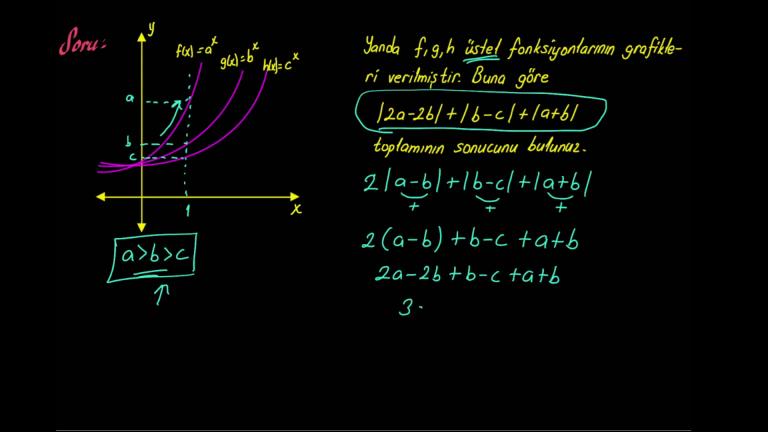 Soru:
y
f(x)=a^x
g(x)=b^x
h(x)=c^x
a
b
c
1
x
a>b>c
Yanda f,g,h üstel fonksiyonlarının grafikle-
ri verilmiştir. Buna göre
|2a-2b|+|b-c|+|a+b|
toplamının sonucunu bulunuz.
2|a-b|+|b-c|+|a+b|
+ + +
2(a-b)+b-c+a+b
2a-2b+b-c+a+b
3